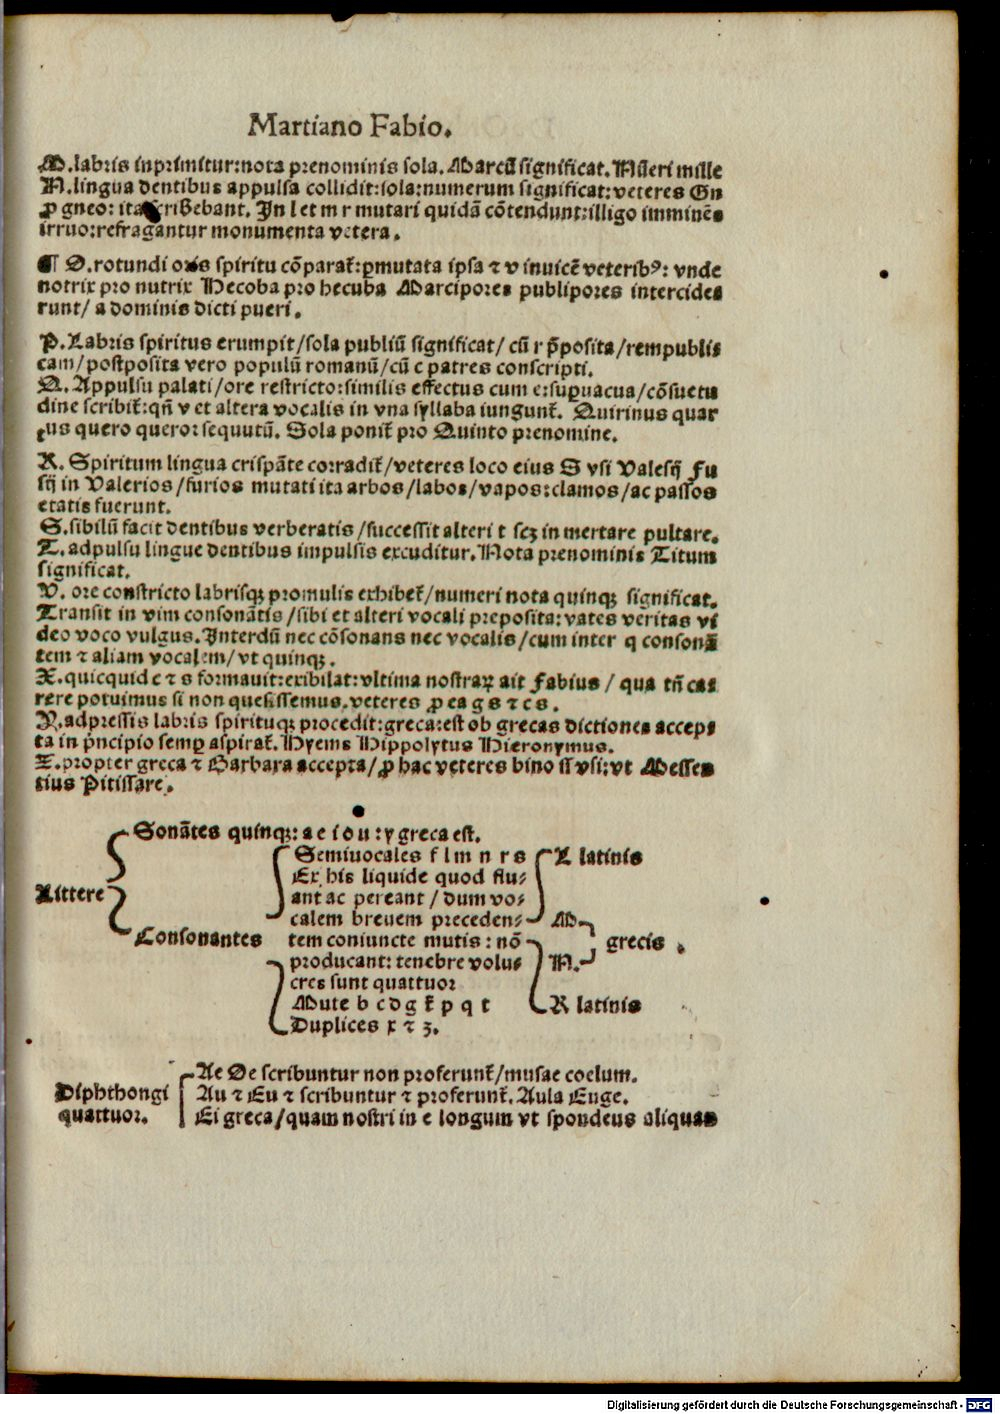 Martiano Fabio.
M.labris inprimitur:nota prenominis sola. Marcũ significat. Nũeri mille
N.lingua dentibus appulsa collidit:sola:numerum significat:veteres Gn
ꝓ gneo: ita scribebant. In l et m r mutari quidã cõtendunt:illigo imminẽs
irruo:refragantur monumenta vetera.
¶ O.rotundi oris spiritu cõparat̃:ꝑmutata ipsa ⁊ v inuicẽ veteribꝰ: vnde
notrix pro nutrix Hecoba pro hecuba Marcipores publipores intercide
runt/ a dominis dicti pueri.
P.Labris spiritus erumpit/sola publiũ significat/ cũ r p̃posita/rempubli⸗
cam/postposita vero populũ romanũ/cũ c patres conscripti.
Q. Appulsu palati/ore restricto:similis effectus cum c:suꝑuacua/cõsuetu
dine scribit̃:qñ v et altera vocalis in vna syllaba iungunt̃. Quirinus quar
tus quero queror sequutũ. Sola ponit̃ pro Quinto prenomine.
R. Spiritum lingua crispãte corradit̃/veteres loco eius S vsi Valesij Fu
sij in Valerios/furios mutati ita arbos/labos/vapos:clamos/ac passos
etatis fuerunt.
S.sibilũ facit dentibus verberatis/successit alteri t scꝫ in mertare pultare.
T. adpulsu lingue dentibus impulsis excuditur.Nota prenominis Titum
significat.
V. ore constricto labrisqꝫ promulis exhibet̃/numeri nota quinqꝫ significat.
Transit in vim consonãtis/sibi et alteri vocali preposita:vates veritas vi
deo voco vulgus.Interdũ nec cõsonans nec vocalis/cum inter q consonã
tem ⁊ aliam vocalem/vt quinqꝫ.
X.quicquid c ⁊ s formauit:exibilat:vltima nostraꝝ ait Fabius/ qua tñ ca⸗
rere potuimus si non quesissemus.veteres ꝓ ea g s ⁊ c s.
Y.adpressis labris spirituqꝫ procedit:greca:est ob grecas dictiones accep⸗
ta in p̃ncipio semꝑ aspirat̃. Hyems Hippolytus Hieronymus.
Z.propter greca ⁊ Barbara accepta/ꝓ hac veteres bino ss vsi:vt Messen
tius Pitissare.
Sonãtes quinqꝫ: a e i o u : y greca est.
Semiuocales f l m n r s
L latinis
Ex his liquide quod flu⸗
Littere
ant ac pereant / dum vo⸗
calem breuem preceden⸗
M
Consonantes
tem coniuncte mutis : nõ
grecis.
producant: tenebre volu⸗
N.
cres sunt quattuor
Mute b c d g k̃ p q t
R latinis
Duplices x ⁊ ʒ.
Ae Oe scribuntur non proferunt̃/musae coelum.
Diphthongi
Au ⁊ Eu ⁊ scribuntur ⁊ proferunt̃. Aula Euge.
quattuor.
Ei greca/quam nostri in e longum vt spondeus aliquan
Digitalisierung gefördert durch die Deutsche Forschungsgemeinschaft - DFG